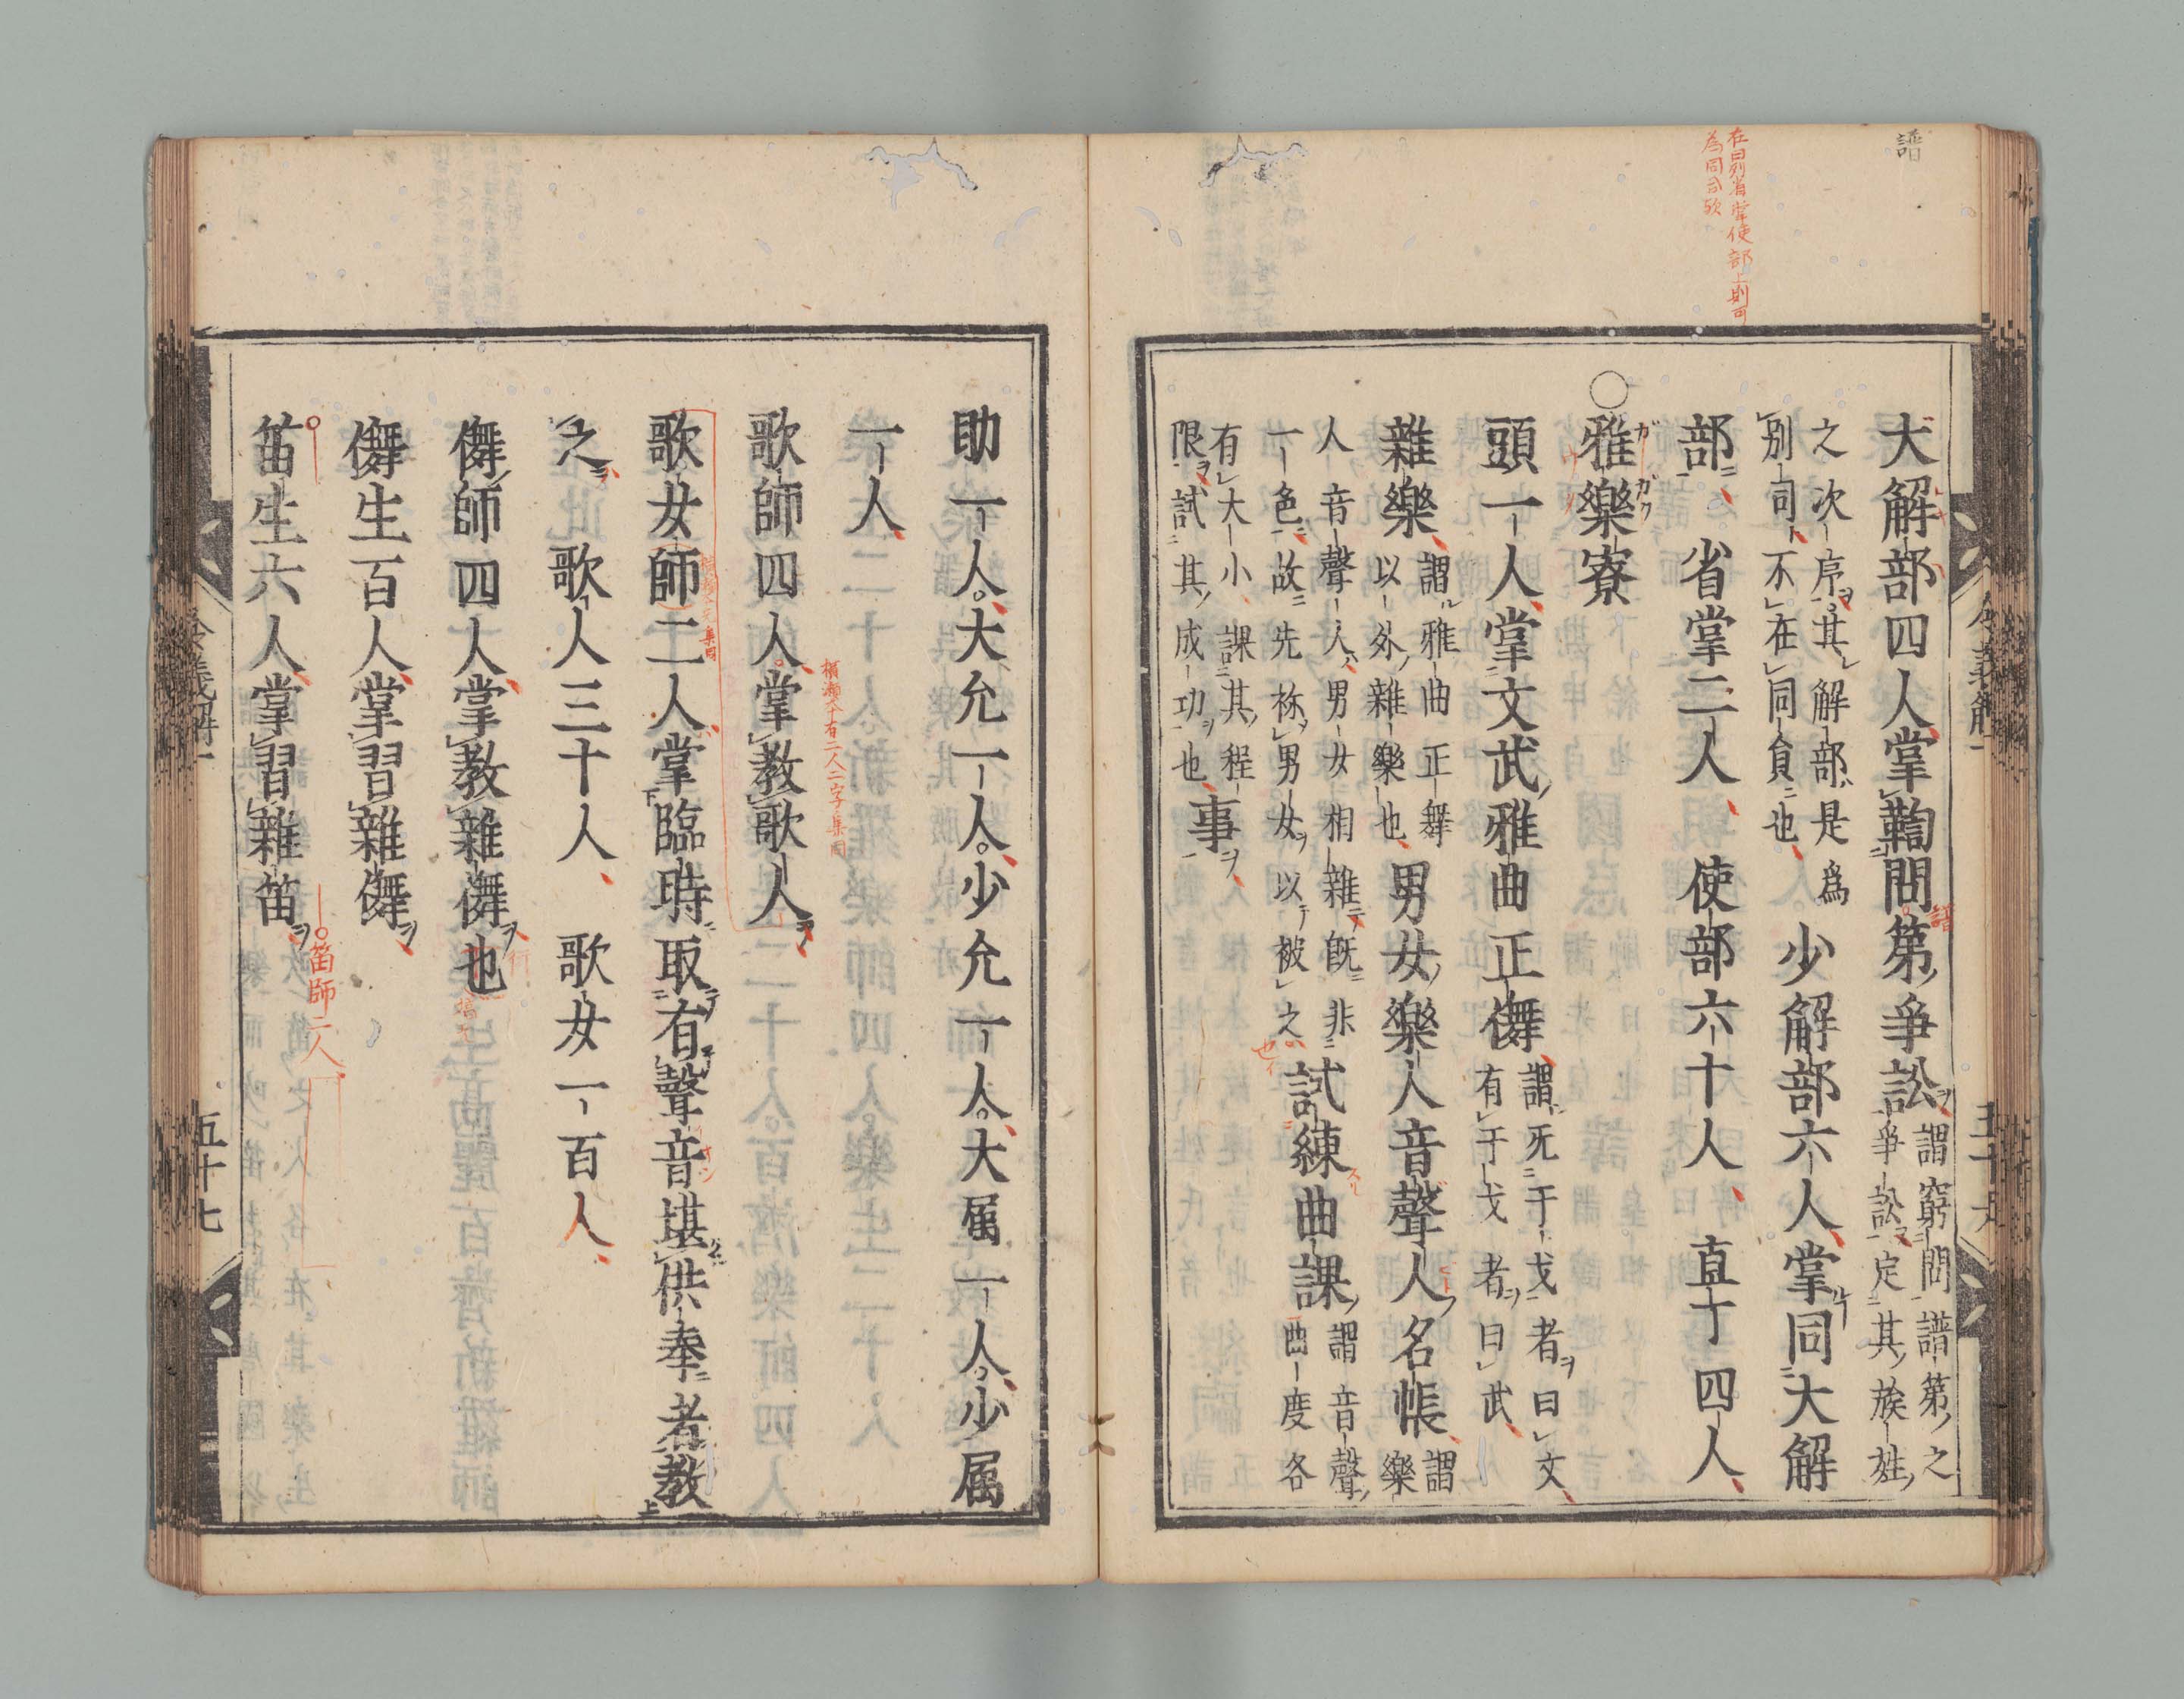 譜
在曰別省掌使部上則可
為同司歟
大解部四人掌鞫問第爭訟謂窮問譜第之
爭訟定其族姓
之次序其解部是爲
別司不在同員也少解部六人掌同大解
部省掌二人使部六十人直丁四人
○雅樂寮
頭一人掌文武雅曲正儛謂旡干戈者曰文
有干戈者曰武
雜樂謂雅曲正舞
以外雜樂也男女樂人音聲人名帳謂
樂
人音聲人男女相雜既非
一色故先稱男女以被之試練曲課謂音聲
曲度各
有大小課其程
限試其成功也事
令義解一
助一人大允一人少允一人大属一人少属
一人
歌師四人掌教歌人
横瀬本有二人二字集同
歌女師二人掌臨時取有聲音堪供奉者教
之歌人三十人歌女一百人
儛師四人掌教雜儛也
儛生百人掌習雜儛
笛師二人
笛生六人掌習雜笛
令義解一
五十七